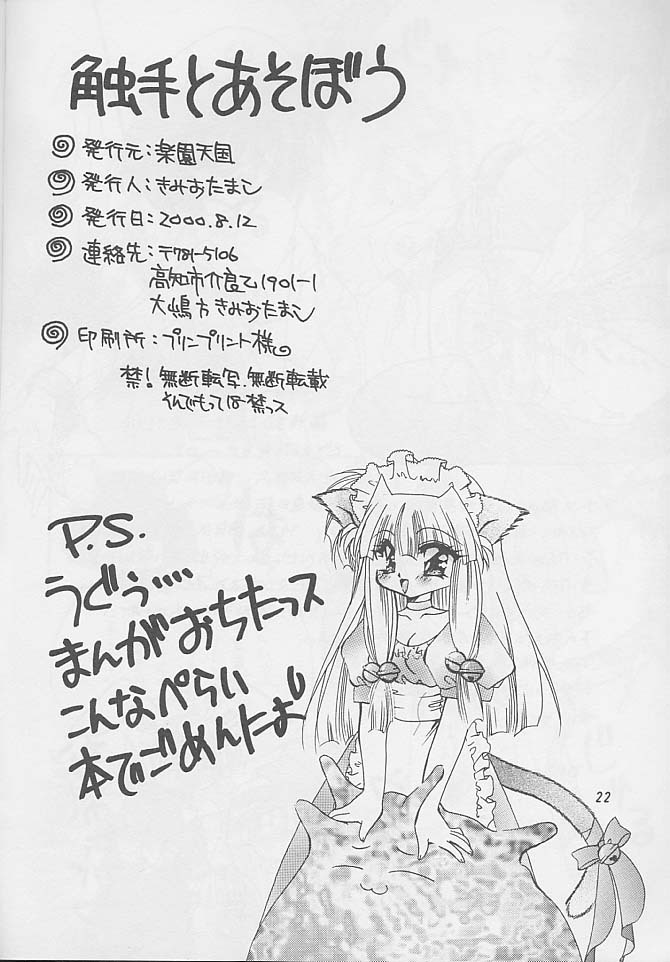 触手とあそぼう
発行元：楽園天国
発行人：きみおたまこ
発行日：2000.8.12
連絡先：〒781-5106
高知市介良乙1901-1
大嶋方きみおたまこ
印刷所：プリンプリント様。
禁！無断転写、無断転載
そんでもって18禁っス
P.S.
うぐぅ‥‥
まんがおちたっス
こんなぺらい
本でごめんだよ
22